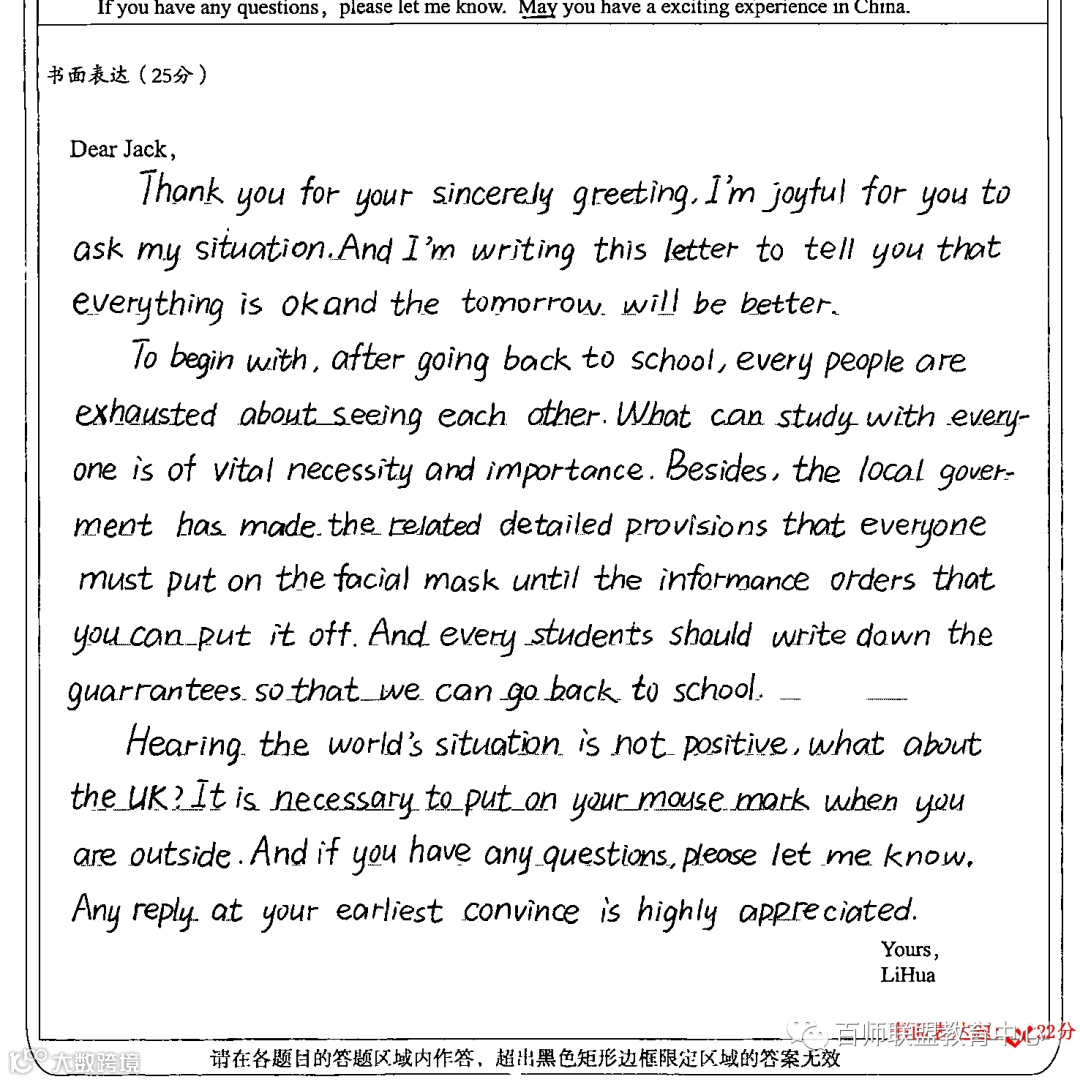 If you have any questions, please let me know. May you have a exciting experience in China.
书面表达（25分）
Dear Jack,
Thank you for your sincerely greeting. I'm joyful for you to
ask my situation. And I'm writing this letter to tell you that
everything is ok and the tomorrow will be better.
To begin with, after going back to school, every people are
exhausted about seeing each other. What can study with every-
one is of vital necessity and importance. Besides, the local gover-
ment has made the related detailed provisions that everyone
must put on the facial mask until the informance orders that
you can put it off. And every students should write down the
guarrantees so that we can go back to school.
Hearing the world's situation is not positive, what about
the UK? It is necessary to put on your mouse mark when you
are outside. And if you have any questions, please let me know.
Any reply at your earliest convince is highly appreciated.
Yours,
LiHua
百师联盟教育中心
22分
请在各题目的答题区域内作答，超出黑色矩形边框限定区域的答案无效
大数跨境